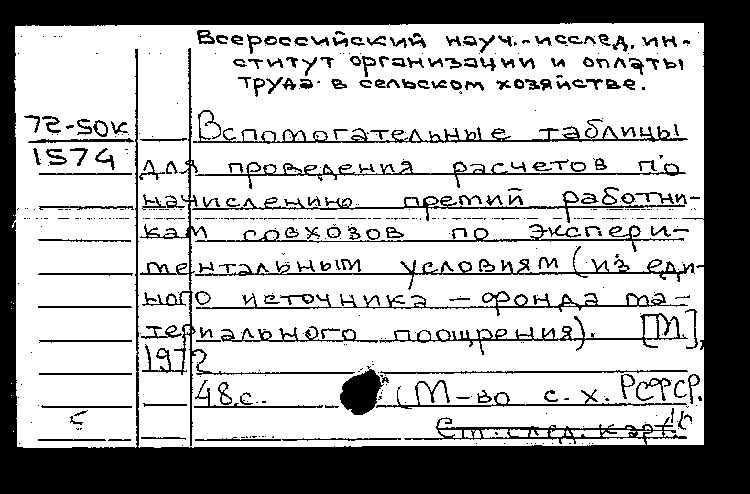 Всероссийский науч.-исслед. ин-
ститут организации и оплаты
труда в сельском хозяйстве.
72-50к
1574
Вспомогательные таблицы
для проведения расчетов по
начислению премий работни-
кам совхозов по экспери-
ментальным условиям (из еди-
ного источника – фонда ма-
териального поощрения). [М.],
1972
48с. (М-во с. х. РСФСР.
См. след. карт.